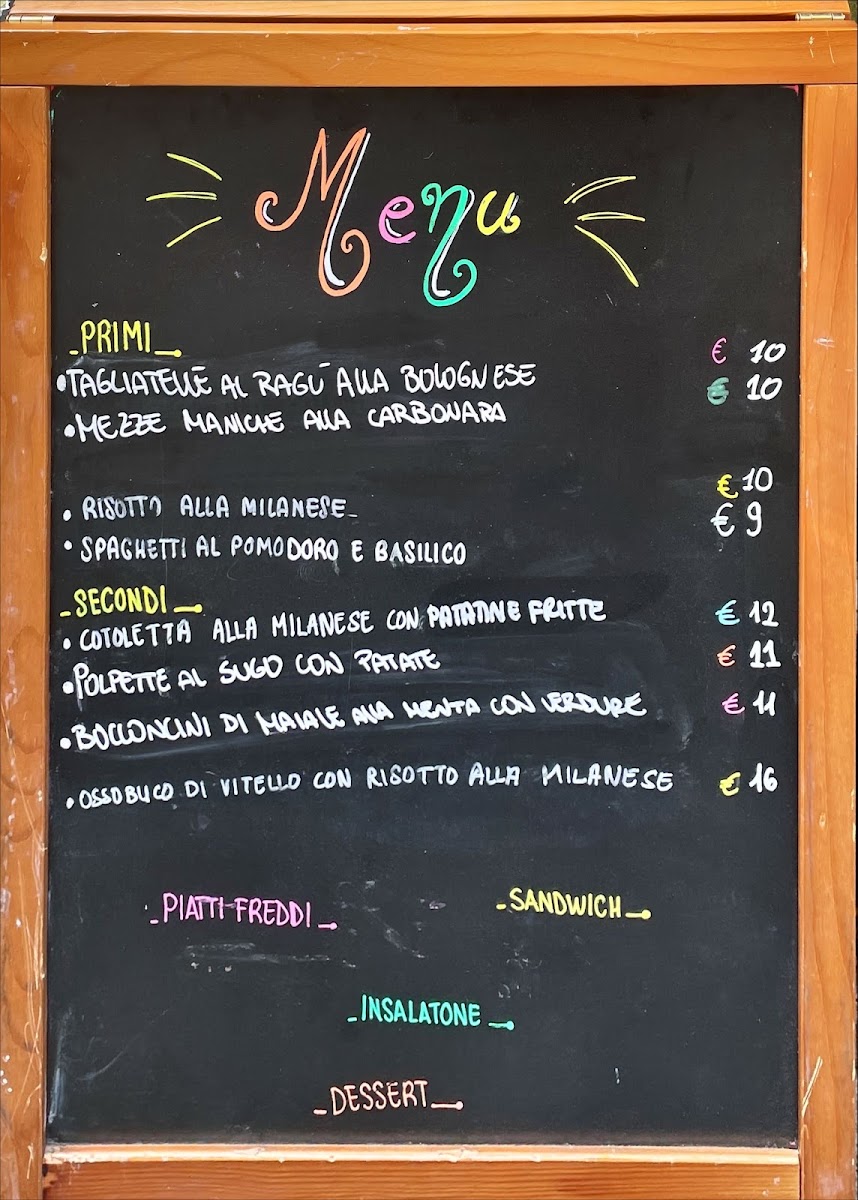 Menu
PRIMI
• TAGLIATELLE AL RAGÙ ALLA BOLOGNESE € 10
• MEZZE MANICHE ALLA CARBONARA € 10
• RISOTTO ALLA MILANESE € 10
• SPAGHETTI AL POMODORO E BASILICO € 9
SECONDI
• COTOLETTA ALLA MILANESE CON PATATINE FRITTE € 12
• POLPETTE AL SUGO CON PATATE € 11
• BOCCONCINI DI MAIALE ALLA MENTA CON VERDURE € 11
• OSSOBUCO DI VITELLO CON RISOTTO ALLA MILANESE € 16
PIATTI FREDDI SANDWICH
INSALATONE
DESSERT